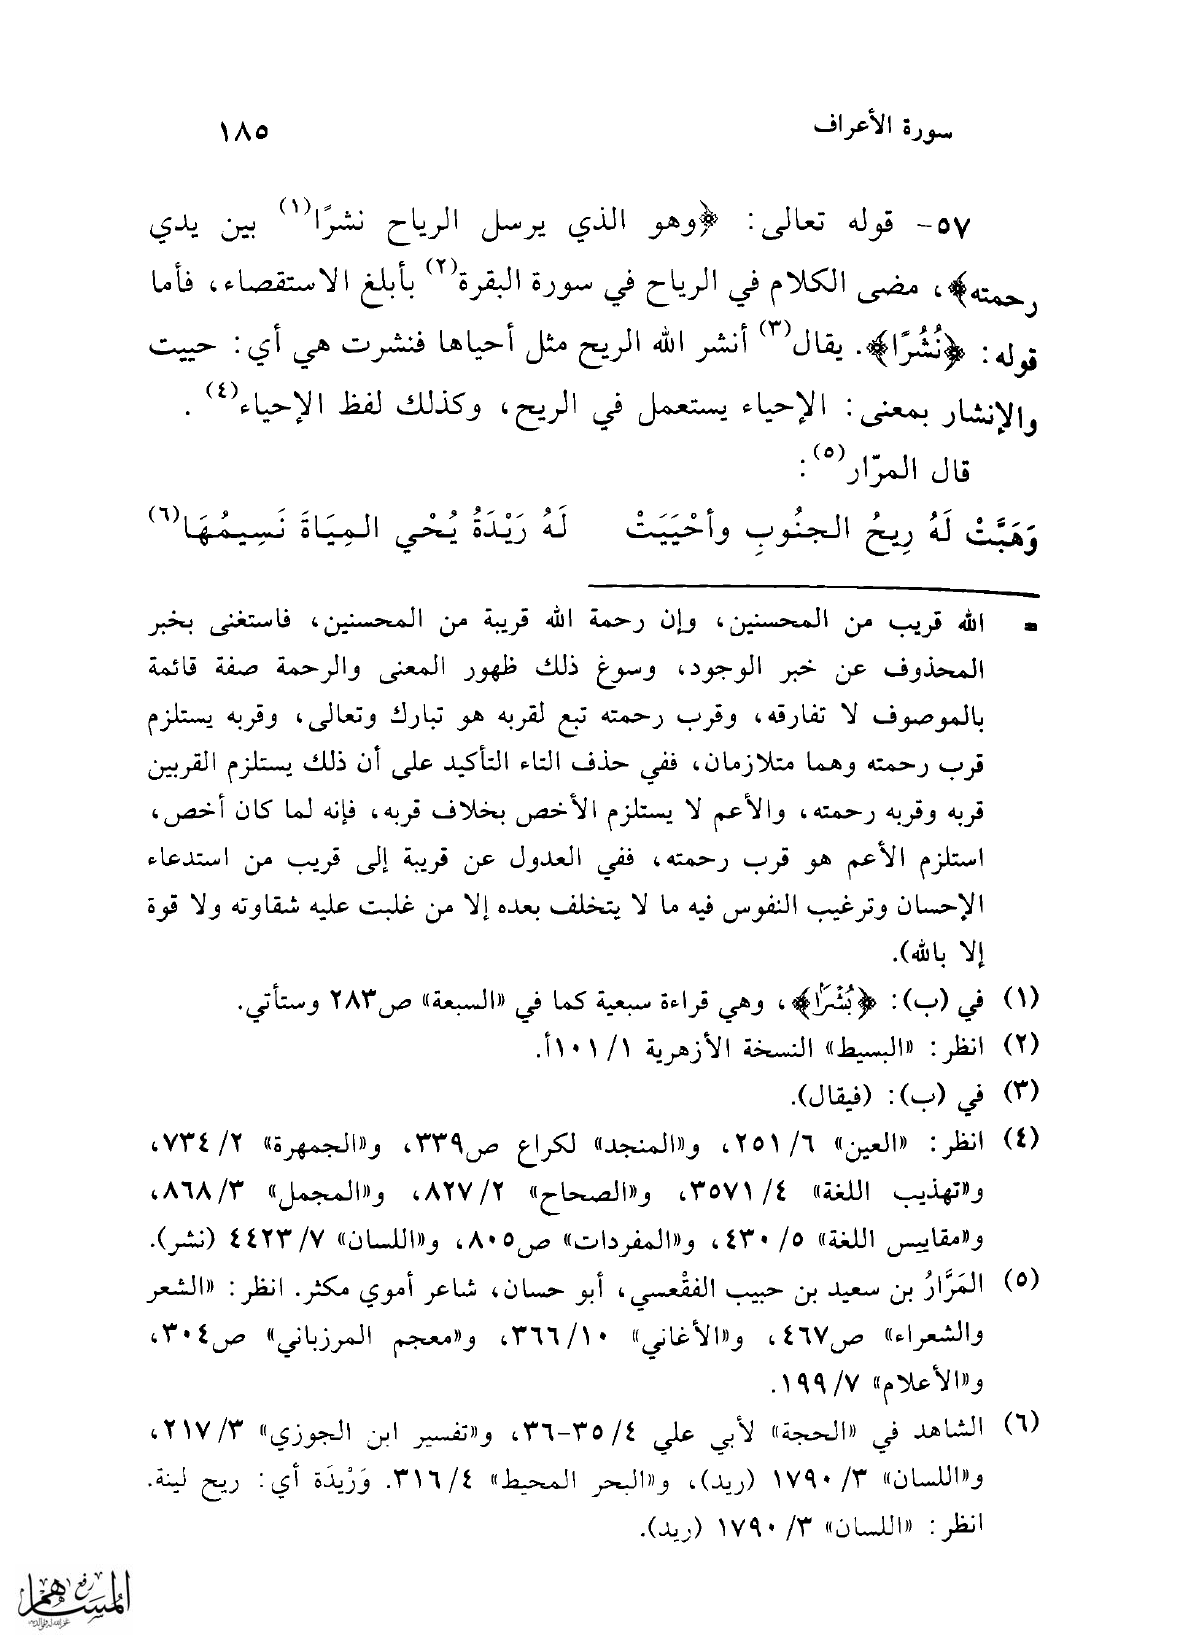 سورة الأعراف ١٨٥
٥٧- قوله تعالى: ﴿وهو الذي يرسل الرياح نشرًا(١) بين يدي
رحمته﴾، مضى الكلام في الرياح في سورة البقرة(٢) بأبلغ الاستقصاء، فأما
قوله: ﴿نُشُرًا﴾. يقال(٣) أنشر الله الريح مثل أحياها فنشرت هي أي: حييت
والإنشار بمعنى: الإحياء يستعمل في الريح، وكذلك لفظ الإحياء(٤).
قال المرّار(٥):
وَهَبَّتْ لَهُ رِيحُ الجنُوبِ وأحْيَيَتْ لَهُ رَيْدَةُ يُحْي المِيَاةَ نَسِيمُهَا(٦)
= الله قريب من المحسنين، وإن رحمة الله قريبة من المحسنين، فاستغنى بخبر
المحذوف عن خبر الوجود، وسوغ ذلك ظهور المعنى والرحمة صفة قائمة
بالموصوف لا تفارقه، وقرب رحمته تبع لقربه هو تبارك وتعالى، وقربه يستلزم
قرب رحمته وهما متلازمان، ففي حذف التاء التأكيد على أن ذلك يستلزم القربين
قربه وقربه رحمته، والأعم لا يستلزم الأخص بخلاف قربه، فإنه لما كان أخص،
استلزم الأعم هو قرب رحمته، ففي العدول عن قريبة إلى قريب من استدعاء
الإحسان وترغيب النفوس فيه ما لا يتخلف بعده إلا من غلبت عليه شقاوته ولا قوة
إلا بالله).
(١) في (ب): ﴿بُشْرًا﴾، وهي قراءة سبعية كما في «السبعة» ص٢٨٣ وستأتي.
(٢) انظر: «البسيط» النسخة الأزهرية ١/ ١٠١أ.
(٣) في (ب): (فيقال).
(٤) انظر: «العين» ٦/ ٢٥١، و«المنجد» لكراع ص٣٣٩، و«الجمهرة» ٢/ ٧٣٤،
و«تهذيب اللغة» ٤/ ٣٥٧١، و«الصحاح» ٢/ ٨٢٧، و«المجمل» ٣/ ٨٦٨،
و«مقاييس اللغة» ٥/ ٤٣٠، و«المفردات» ص٨٠٥، و«اللسان» ٧/ ٤٤٢٣ (نشر).
(٥) المَرَّارُ بن سعيد بن حبيب الفقْعسي، أبو حسان، شاعر أموي مكثر. انظر: «الشعر
والشعراء» ص٤٦٧، و«الأغاني» ١٠/ ٣٦٦، و«معجم المرزباني» ص٣٠٤،
و«الأعلام» ٧/ ١٩٩.
(٦) الشاهد في «الحجة» لأبي علي ٤/ ٣٥-٣٦، و«تفسير ابن الجوزي» ٣/ ٢١٧،
و«اللسان» ٣/ ١٧٩٠ (ريد)، و«البحر المحيط» ٤/ ٣١٦. وَرْيدَة أي: ريح لينة.
انظر: «اللسان» ٣/ ١٧٩٠ (ريد).